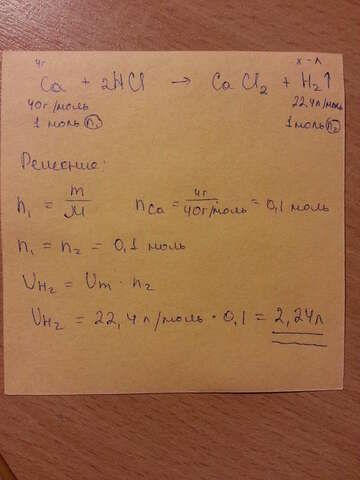 4г x - л
Ca + 2HCl → CaCl₂ + H₂↑
40г/моль 22,4л/моль
1 моль n₁ 1моль n₂
Решение:
n₁ = m/M nCa = 4г/40г/моль = 0,1 моль
n₁ = n₂ = 0,1 моль
VH₂ = Vm · n₂
VH₂ = 22,4 л/моль · 0,1 = 2,24л